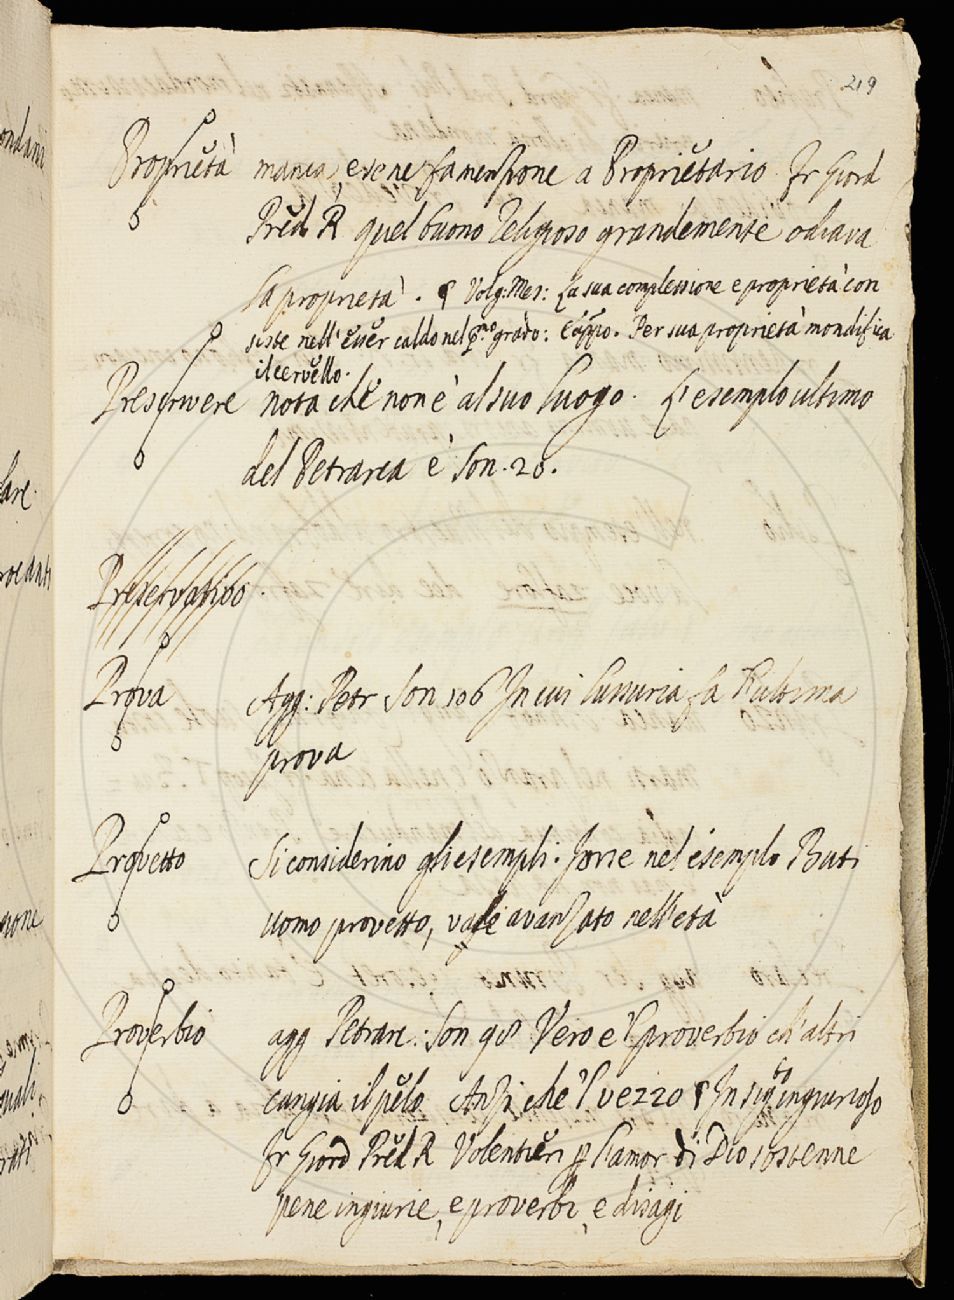 219
Proprietà manca, e se ne fa menzione a Proprietario. Fr Giord
Pred. R quel buono Religioso grandemente odiava
la proprietà. Volg: Mes: La sua complessione e proprietà con
siste nell'esser caldo nel p.mo grado: E appo. Per sua proprietà mondifica
il cervello.
Prescrivere nota che non è al suo luogo. L'esemplo ultimo
del Petrarca è Son. 28.
Preservativo.
Prova Agg: Petr Son 106 In cui lussuria fa l'ultima
prova
Provetto Si considerino gli esempli. Forse nel esemplo Buti
uomo provetto, vale avanzato nell'età
Proverbio agg Petrarc: Son 98 Vero e'l proverbio ch'altri
cangia il pelo Anzi che'l vezzo In sig.to ingiurioso
Fr Giord Pred R Volentieri p l'amor di Dio sostenne
pene ingiurie, e proverbi, e disagi